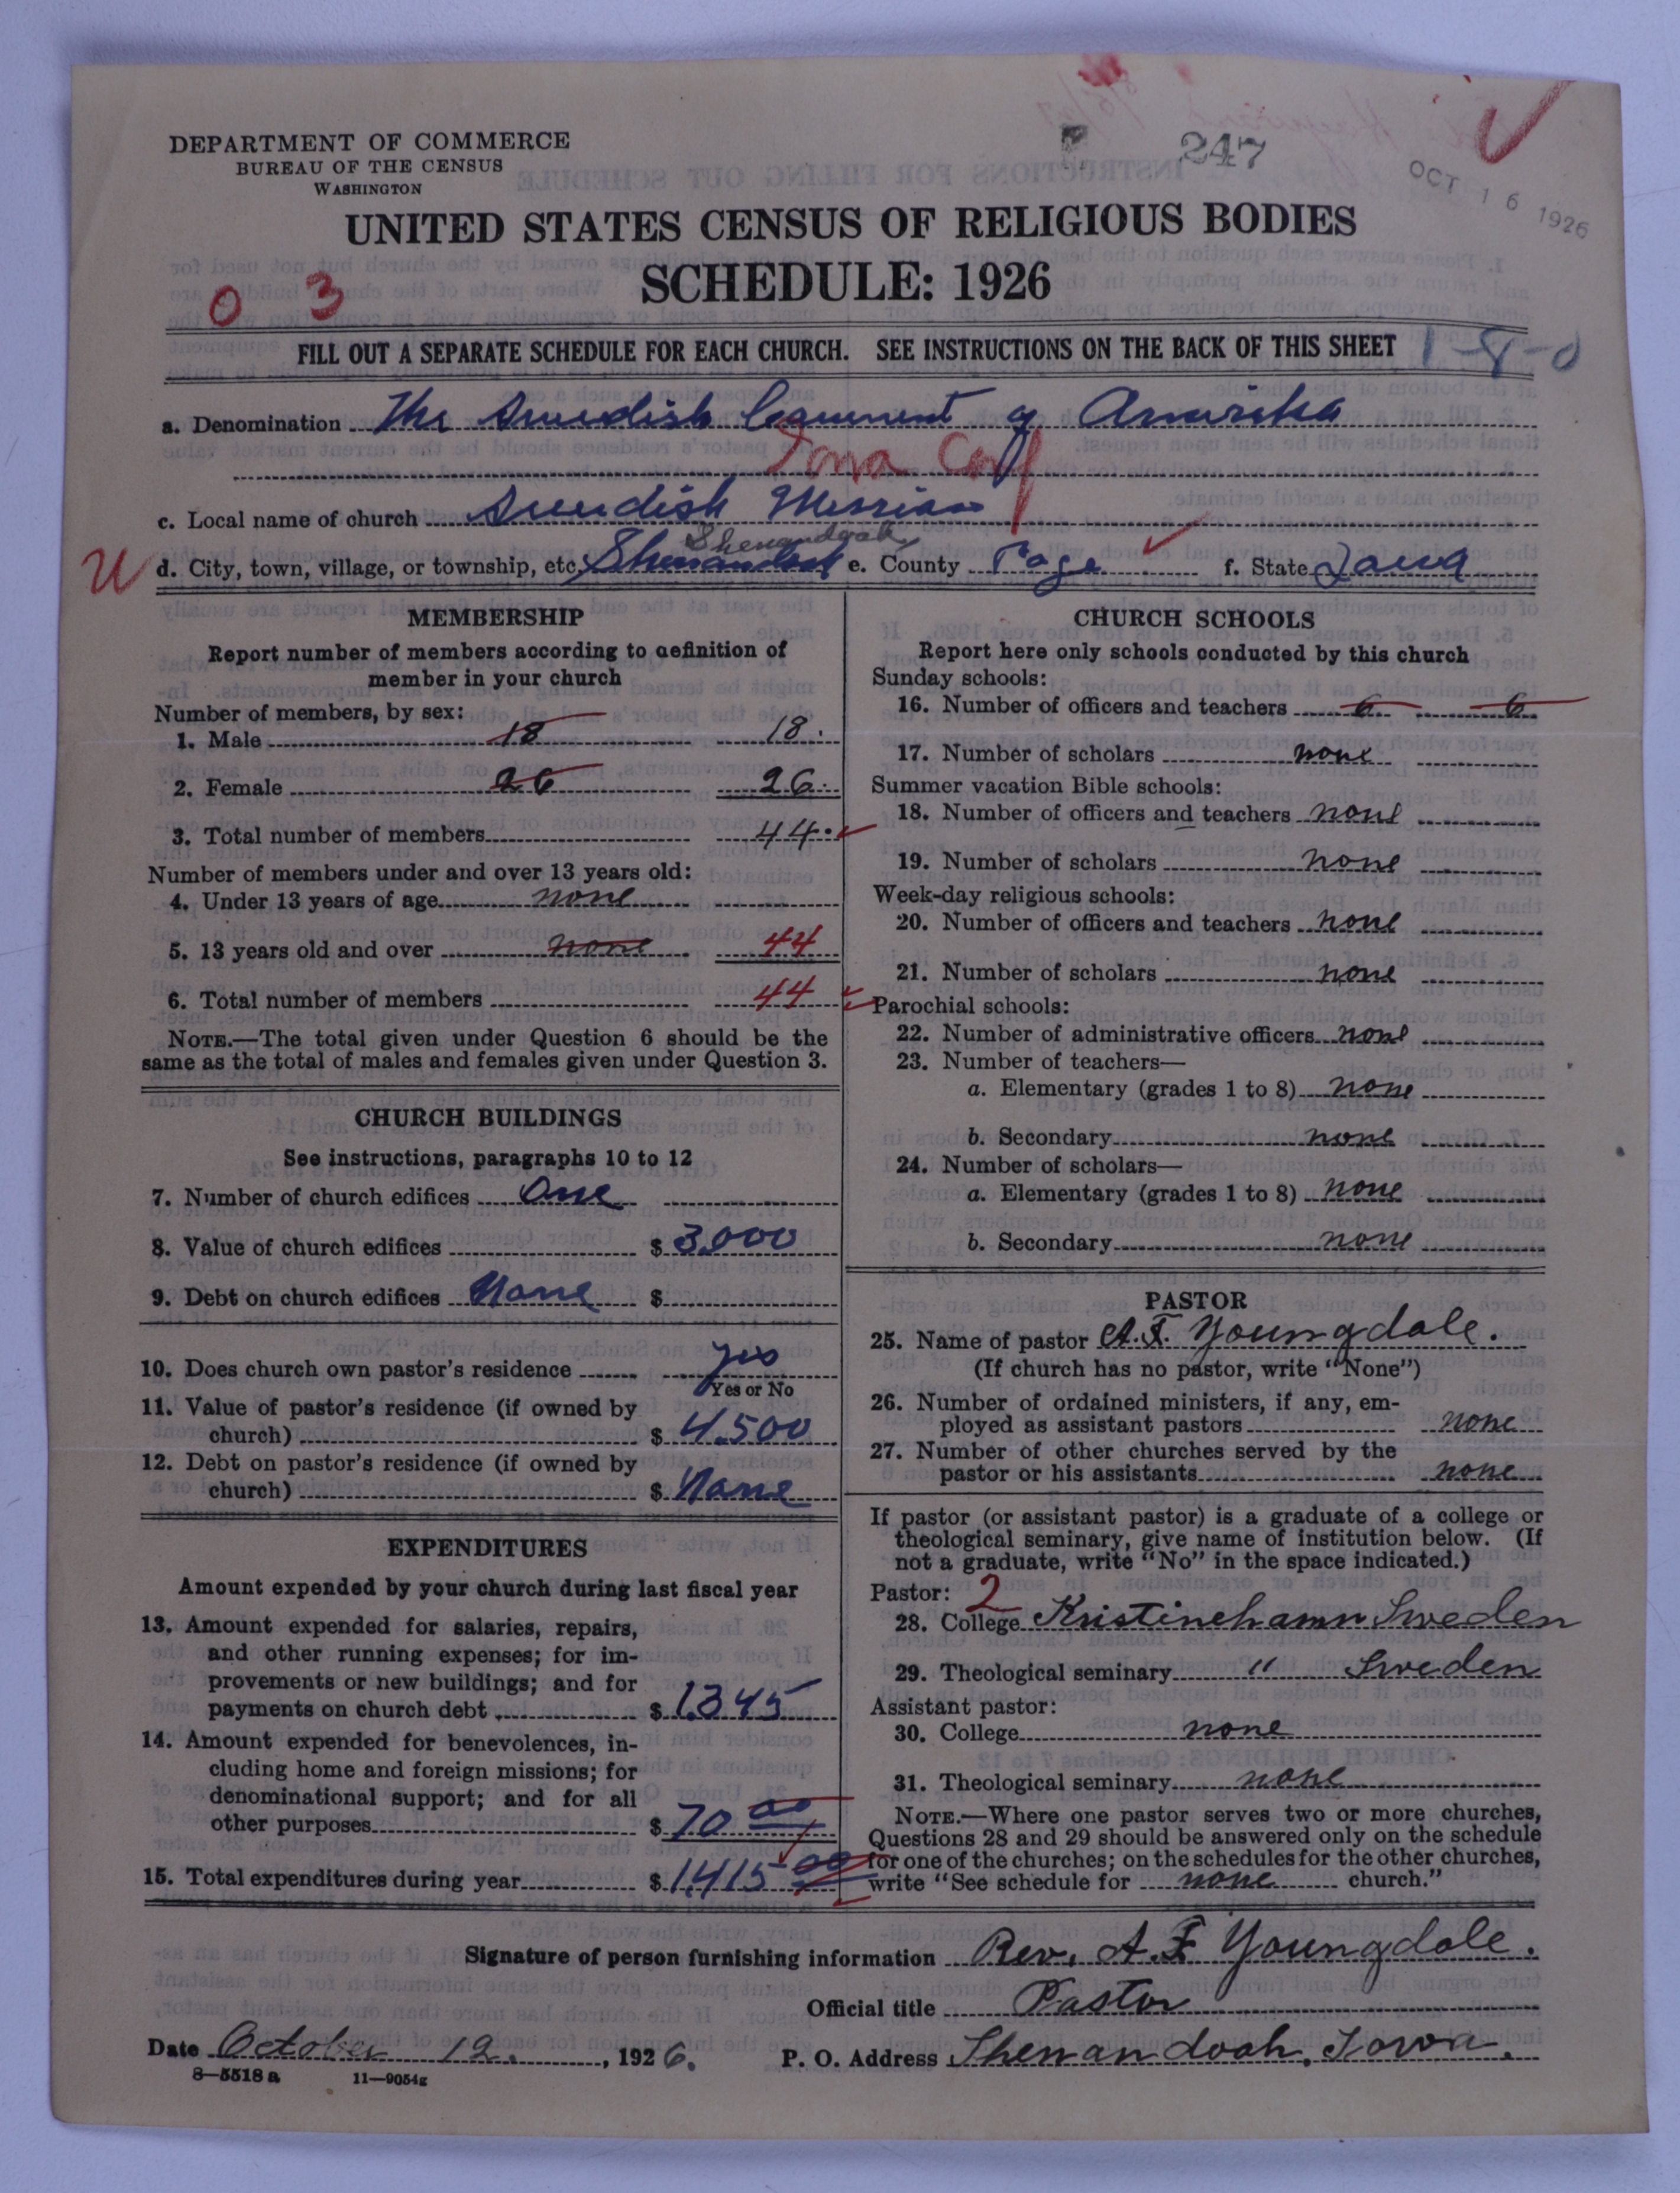 DEPARTMENT OF COMMERCE
BUREAU OF THE CENSUS
WASHINGTON
247
OCT 16 1926
UNITED STATES CENSUS OF RELIGIOUS BODIES
SCHEDULE: 1926
0 3
FILL OUT A SEPARATE SCHEDULE FOR EACH CHURCH. SEE INSTRUCTIONS ON THE BACK OF THIS SHEET 1-8-0
a. Denomination The Swedish of Amerika
Iowa Conf
c. Local name of church Swedish Mission
Shenandoah
d. City, town, village, or township, etc. e. County Page f. State Iowa
MEMBERSHIP
Report number of members according to definition of
member in your church
Number of members, by sex:
1. Male 18 18.
2. Female 26 26.
3. Total number of members 44.
Number of members under and over 13 years old:
4. Under 13 years of age none
5. 13 years old and over none 44
6. Total number of members 44
NOTE.—The total given under Question 6 should be the
same as the total of males and females given under Question 3.
CHURCH BUILDINGS
See instructions, paragraphs 10 to 12
7. Number of church edifices One
8. Value of church edifices $ 3,000
9. Debt on church edifices None $
10. Does church own pastor's residence yes
Yes or No
11. Value of pastor's residence (if owned by
church) $ 4,500
12. Debt on pastor's residence (if owned by
church) $ None
EXPENDITURES
Amount expended by your church during last fiscal year
13. Amount expended for salaries, repairs,
and other running expenses; for im-
provements or new buildings; and for
payments on church debt $ 1,345
14. Amount expended for benevolences, in-
cluding home and foreign missions; for
denominational support; and for all
other purposes $ 70 00
15. Total expenditures during year $ 1,415 00
CHURCH SCHOOLS
Report here only schools conducted by this church
Sunday schools:
16. Number of officers and teachers 6 6
17. Number of scholars none
Summer vacation Bible schools:
18. Number of officers and teachers none
19. Number of scholars none
Week-day religious schools:
20. Number of officers and teachers none
21. Number of scholars none
Parochial schools:
22. Number of administrative officers none
23. Number of teachers—
a. Elementary (grades 1 to 8) none
b. Secondary none
24. Number of scholars—
a. Elementary (grades 1 to 8) none
b. Secondary none
PASTOR
25. Name of pastor A.F. Youngdale.
(If church has no pastor, write "None")
26. Number of ordained ministers, if any, em-
ployed as assistant pastors none
27. Number of other churches served by the
pastor or his assistants none
If pastor (or assistant pastor) is a graduate of a college or
theological seminary, give name of institution below. (If
not a graduate, write "No" in the space indicated.)
Pastor: 2
28. College Kristinehamn Sweden
29. Theological seminary " Sweden
Assistant pastor:
30. College none
31. Theological seminary none
NOTE.—Where one pastor serves two or more churches,
Questions 28 and 29 should be answered only on the schedule
for one of the churches; on the schedules for the other churches,
write "See schedule for none church."
Signature of person furnishing information Rev. A F Youngdale.
Official title Pastor
Date October 12. , 1926. P. O. Address Shenandoah, Iowa.
8—5518 a 11—9054g